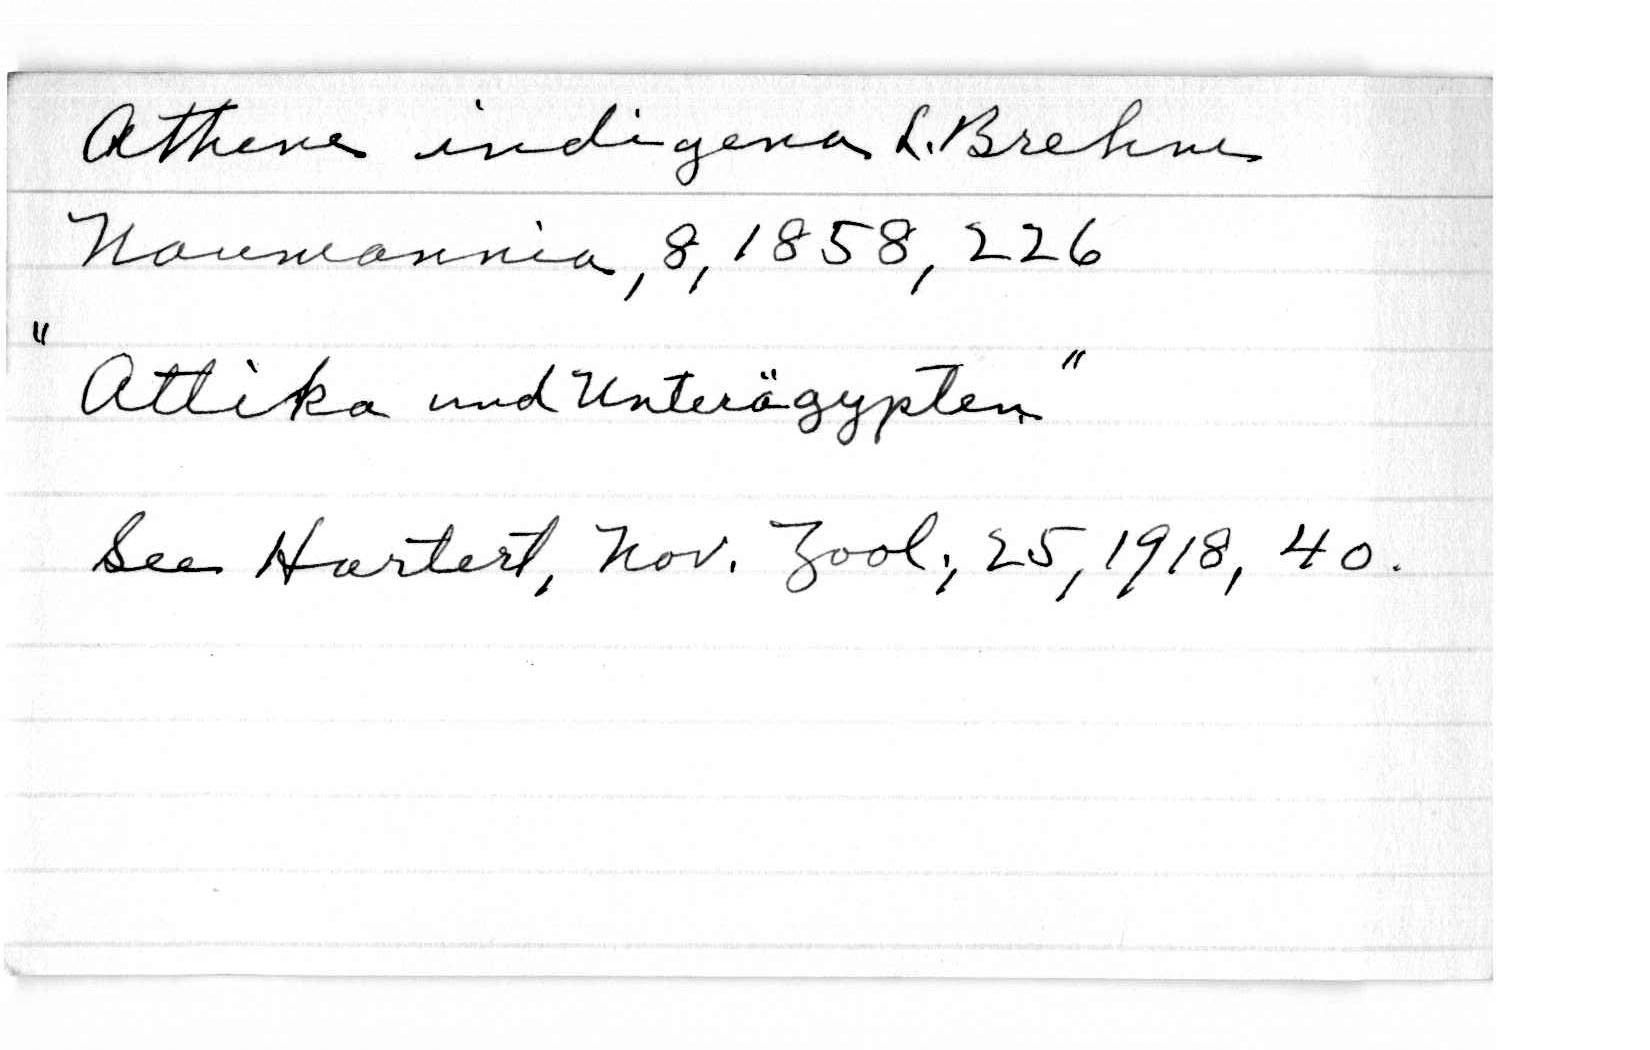 Athene indigena L. Brehm
Naumannia, 8, 1858, 226
"Attika und Unterägypten"
See Hartert, Nov. Zool., 25, 1918, 40.